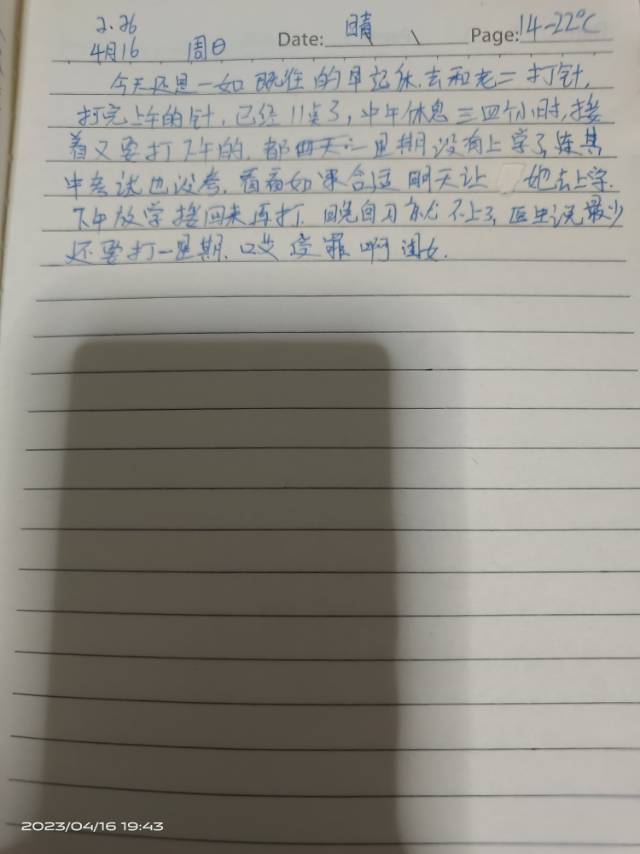 2.26
4月16 周日 Date: 晴 \ Page: 14-22℃
今天还是一如既往的早起床.去和老二打针,
打完上午的针,已经11点了,中午休息三四个小时,接
着又要打下午的.都一星期没有上学了,连期
中考试也没考.看看如果合适明天让 她去上学.
下午放学接回来再打.晚自习就不上了,医生说最少
还要打一星期.哎受罪啊闺女.
2023/04/16 19:43